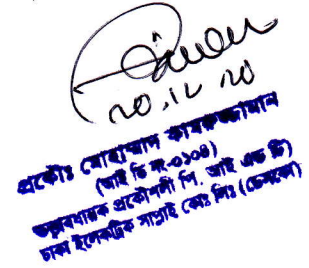 ২০.১২.২০
প্রকৌঃ মোহাম্মাদ কামরুজ্জামান
(আই ডি নং-০১০৪)
তত্ত্বাবধায়ক প্রকৌশলী পি. আই এন্ড ডি)
ঢাকা ইলেকট্রিক সাপ্লাই কোঃ লিঃ (ডেসকো)